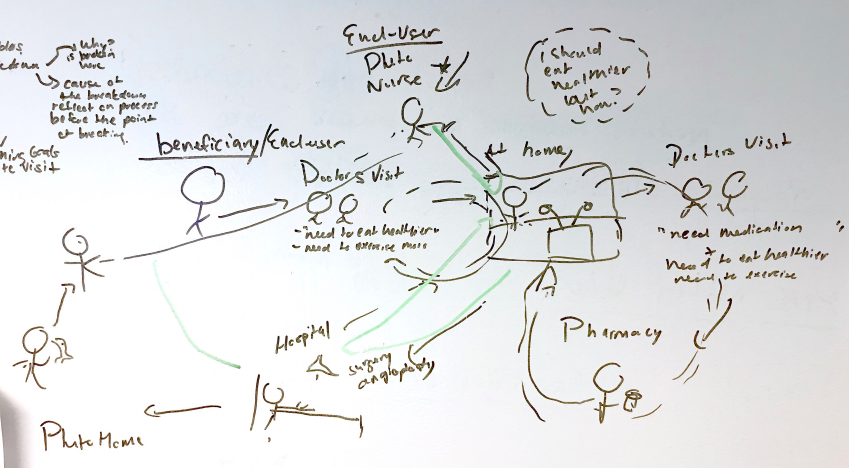 Why?
is problem
here
cause of
the breakdown
reflect on process
before the point
of breaking.
Goals
Visit
beneficiary/End-user
End-User
Plute
Nurse
I should
eat
healthier
but
how?
Doctors Visit
"need to eat healthier"
- need to exercise more
At home
Doctors Visit
"need medication"
need to eat healthier
need to exercise
Hospital
surgery
angioplasty
Pharmacy
Plute Home